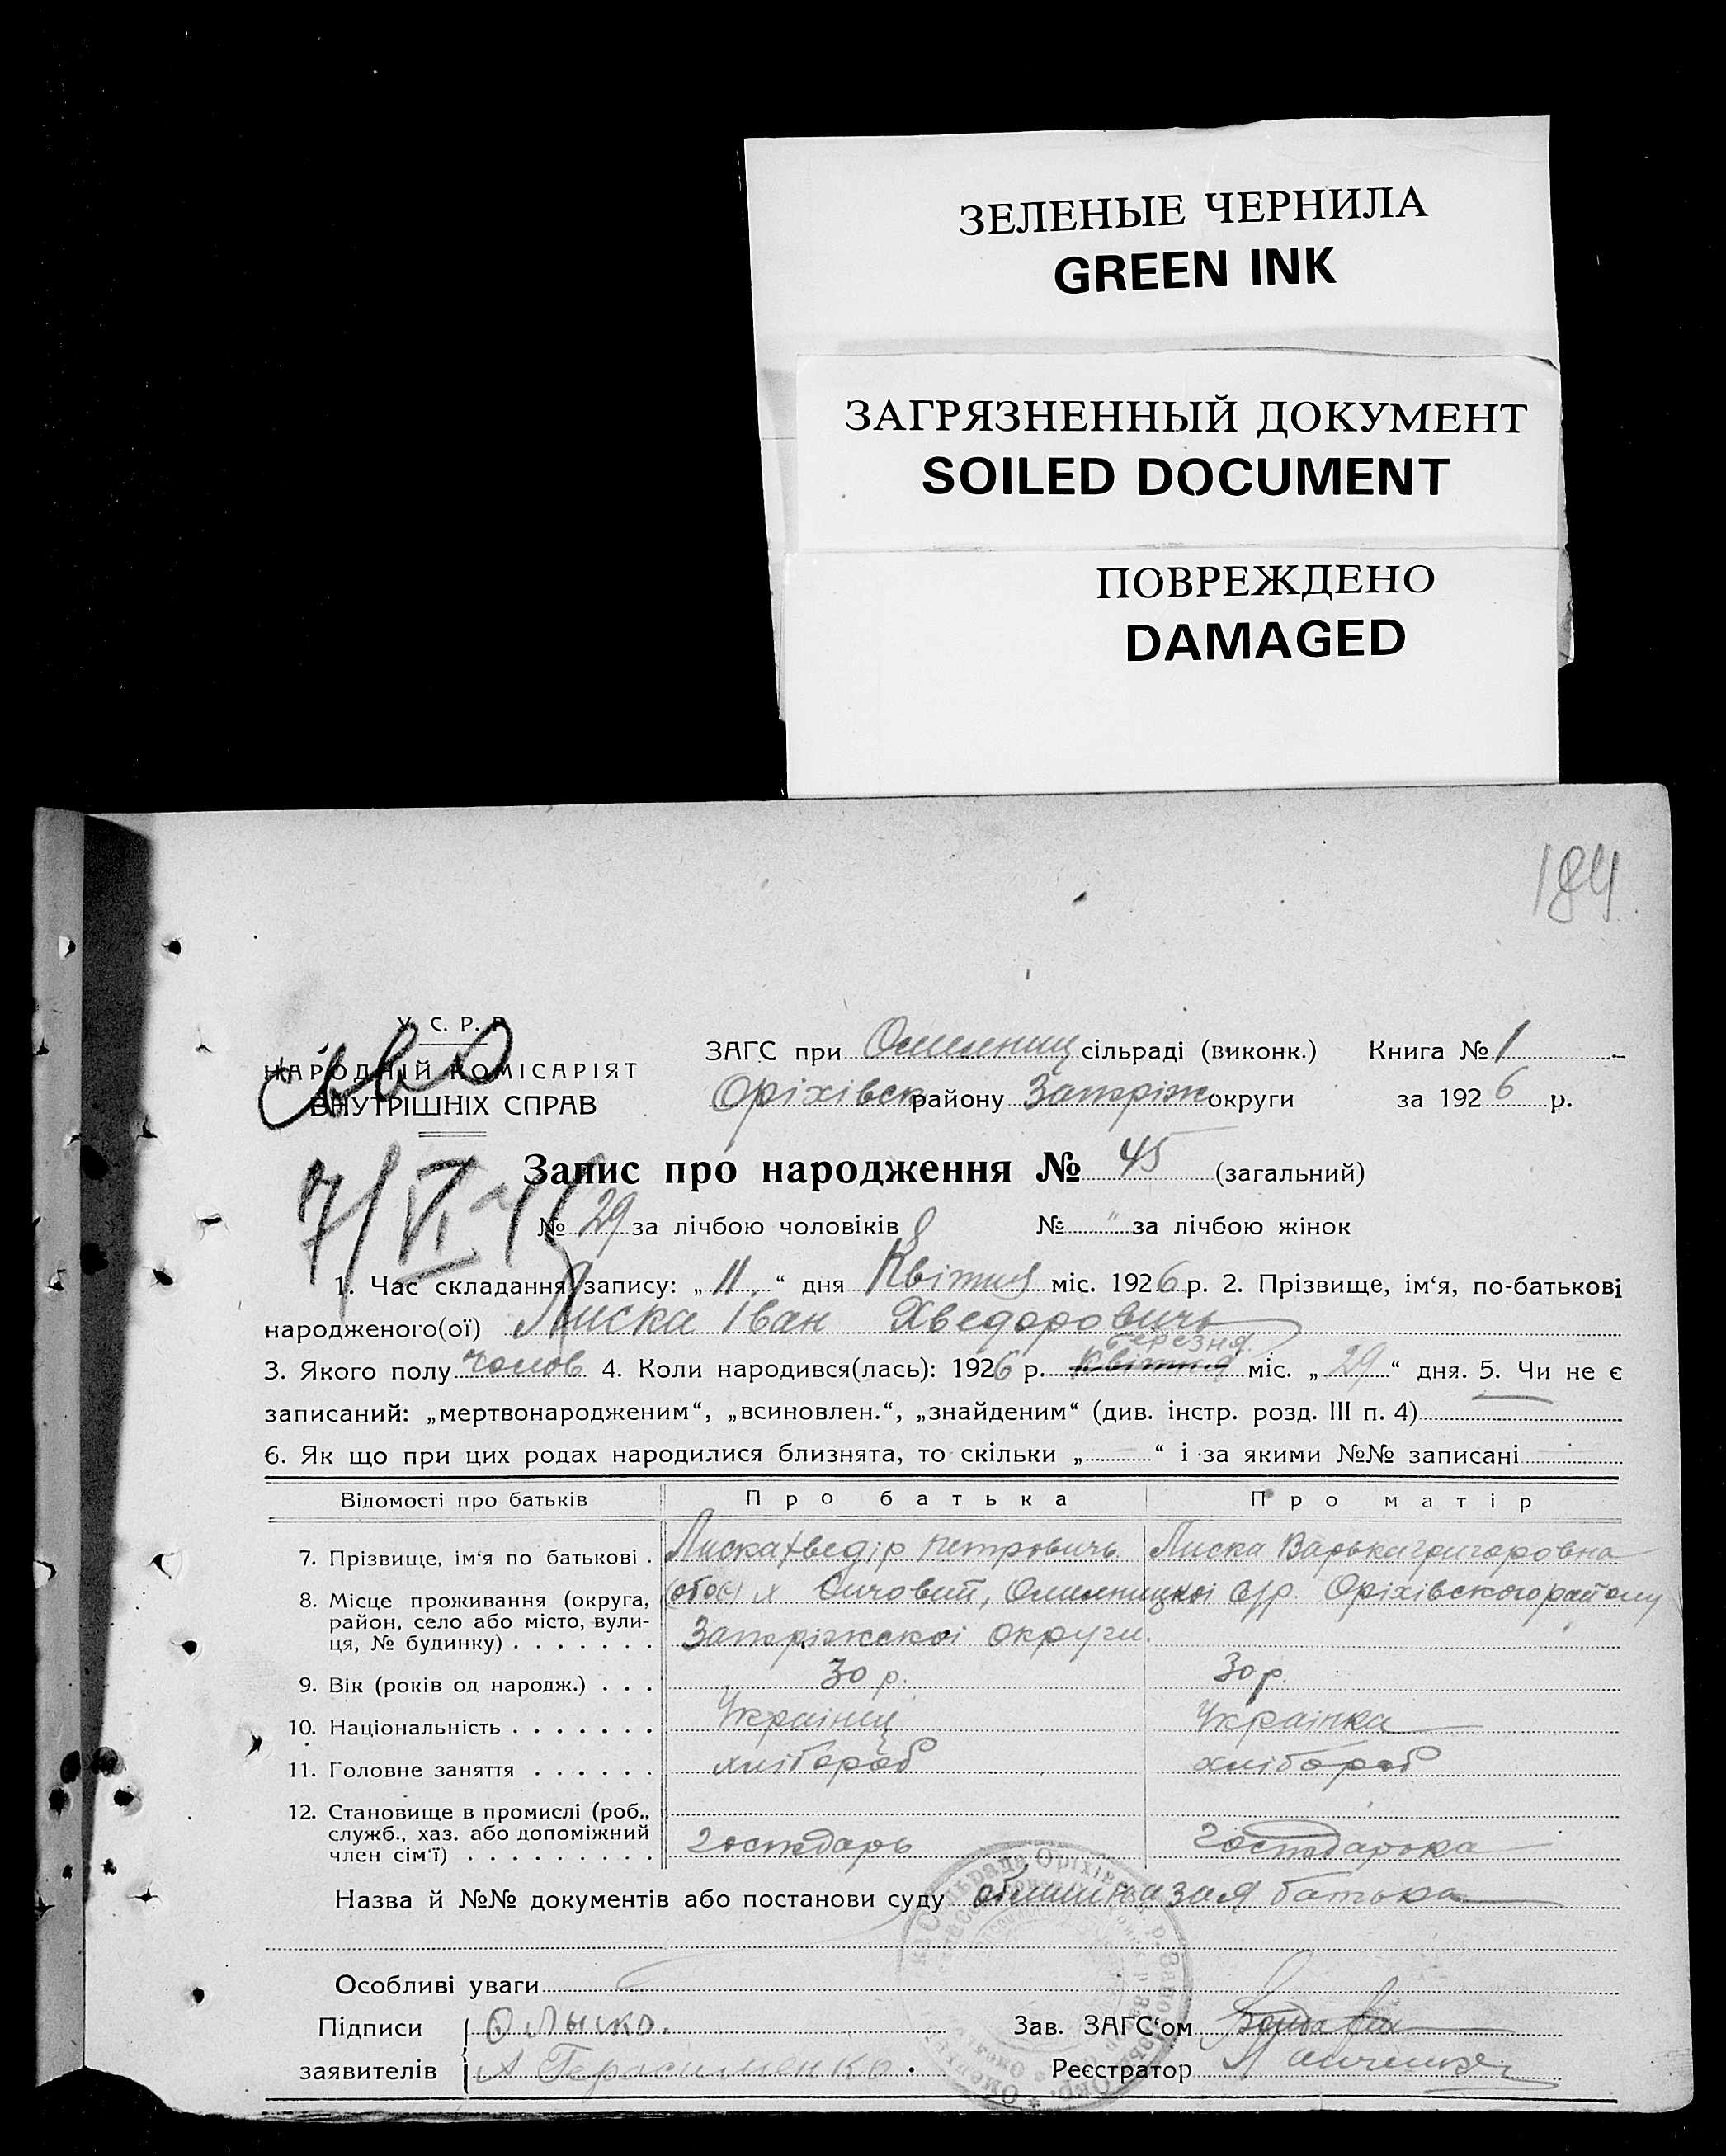 ЗЕЛЕНЫЕ ЧЕРНИЛА
GREEN INK
ЗАГРЯЗНЕННЫЙ ДОКУМЕНТ
SOILED DOCUMENT
ПОВРЕЖДЕНО
DAMAGED
184
У. С. Р. Р.
НАРОДНІЙ КОМІСАРІЯТ
ВНУТРІШНІХ СПРАВ
ЗАГС при Омельниц сільраді (виконк.) Книга № 1
Оріхівськ району Запоріж округи за 1926 р.
Запис про народження № 45 (загальний)
7/VI
№ 29 за лічбою чоловіків № " за лічбою жінок
1. Час складання запису: „11“ дня Квітня міс. 1926 р. 2. Прізвище, ім‘я, по-батькові
народженого(ої) Лиска Іван Хведоровичь
березня
3. Якого полу чолов 4. Коли народився(лась): 1926 р. квітня міс. „29“ дня. 5. Чи не є
записаний: „мертвонародженим“, „всиновлен.“, „знайденим“ (див. інстр. розд. III п. 4)
6. Як що при цих родах народилися близнята, то скільки „ “ і за якими №№ записані
Відомості про батьків Про батька Про матір
7. Прізвище, ім‘я по батькові . Лиска Хведір Петровичь Лиска Варька Григоровна
8. Місце проживання (округа, (обоє) х Сичовий, Омельницкої с/р. Оріхівского району
район, село або місто, вули-
ця, № будинку) . . . . . . . Запоріжскої округи.
9. Вік (років од народж.) . . . 30 р. 30 р.
10. Національність . . . . . . . Українец Українка
11. Головне заняття . . . . . . хлібороб хлібороб
12. Становище в промислі (роб.,
служб., хаз. або допоміжний
член сім‘ї) . . . . . . . . . господарь господарка
Назва й №№ документів або постанови суду батька
Особливі уваги
Підписи О Лыска. Зав. ЗАГС‘ом
заявителів А Герасименко. Реєстратор